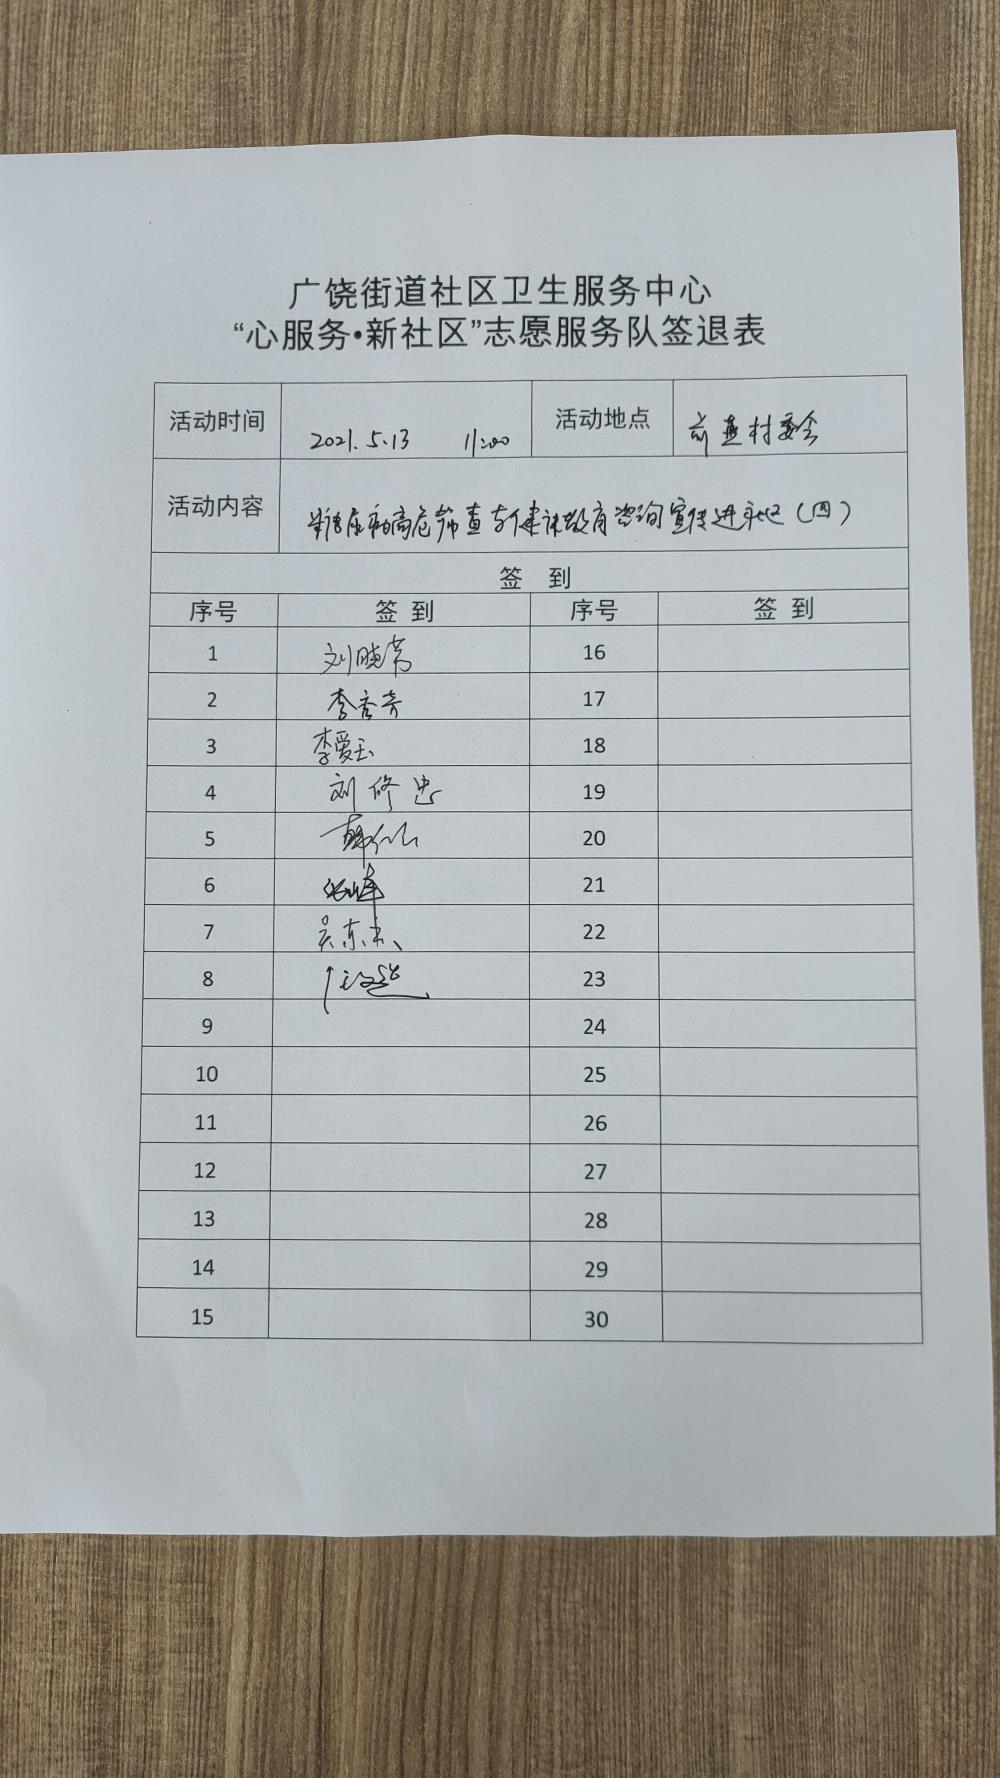 广饶街道社区卫生服务中心
“心服务•新社区”志愿服务队签退表
活动时间 2021.5.13 11:00 活动地点 前 村委会
活动内容 糖尿病高危筛查与健康教育咨询宣传进社区(四)
签 到
序号 签 到 序号 签 到
1 刘晓芳 16
2 李秀芳 17
3 李爱玉 18
4 刘修忠 19
5 20
6 21
7 吴东杰 22
8 23
9 24
10 25
11 26
12 27
13 28
14 29
15 30